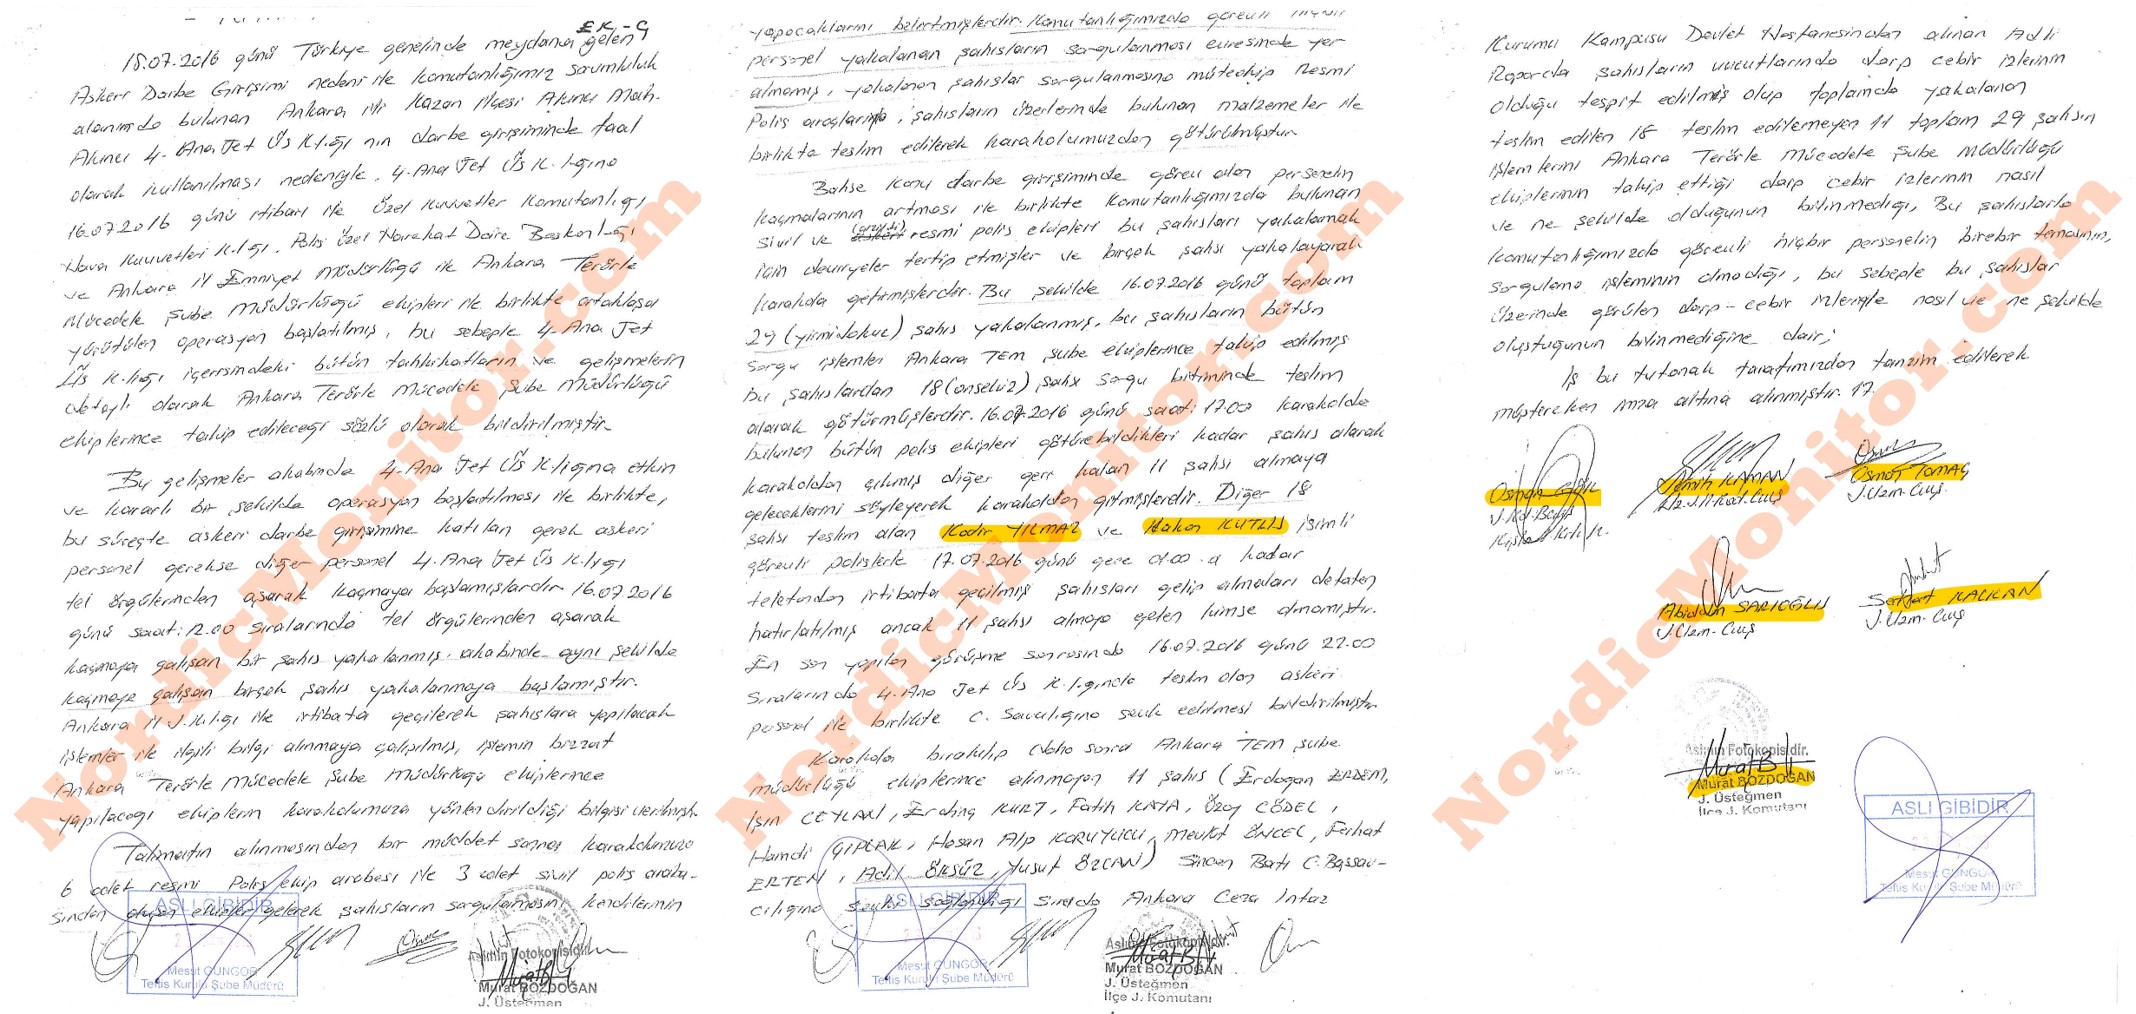 EK-9
15.07.2016 günü Türkiye genelinde meydana gelen
Askeri Darbe Girişimi nedeni ile Komutanlığımız sorumluluk
alanında bulunan Ankara ili Kazan ilçesi Akıncı Mah.
Akıncı 4. Ana Jet Üs K.lığı nın darbe girişiminde faal
olarak kullanılması nedeniyle, 4. Ana Jet Üs K.lığına
16.07.2016 günü itibari ile Özel Kuvvetler Komutanlığı
Hava Kuvvetleri K.lığı, Polis Özel Harekat Daire Başkanlığı
ve Ankara il Emniyet Müdürlüğü ile Ankara Terörle
Mücadele Şube Müdürlüğü ekipleri ile birlikte ortaklaşa
yürütülen operasyon başlatılmış, bu sebeple 4. Ana Jet
Üs K.lığı içerisindeki bütün tahkikatların ve gelişmelerin
detaylı olarak Ankara Terörle Mücadele Şube Müdürlüğü
ekiplerince takip edileceği sözlü olarak bildirilmiştir.
Bu gelişmeler akabinde 4. Ana Jet Üs K.lığına etkin
ve kararlı bir şekilde operasyon başlatılması ile birlikte,
bu süreçte askeri darbe girişimine katılan gerek askeri
personel gerekse diğer personel 4. Ana Jet Üs K.lığı
tel örgülerinden aşarak kaçmaya başlamışlardır. 16.07.2016
günü saat: 12.00 sıralarında tel örgülerinden aşarak
kaçmaya çalışan bir şahıs yakalanmış, akabinde aynı şekilde
kaçmaya çalışan birçok şahıs yakalanmaya başlamıştır.
Ankara il J.K.lığı ile irtibata geçilerek şahıslara yapılacak
işlemler ile ilgili bilgi alınmaya çalışılmış, işlemin bizzat
Ankara Terörle Mücadele Şube Müdürlüğü ekiplerince
yapılacağı ekiplerin karakolumuza yönlendirildiği bilgisi verilmiştir.
Talimatın alınmasından bir müddet sonra karakolumuza
6 adet resmi Polis ekip arabası ile 3 adet sivil polis araba-
sından oluşan ekipler gelerek şahısların sorgulamasını kendilerinin
ASLI GİBİDİR
Mesut GÜNGÖR
Teftiş Kurulu Şube Müdürü
Aslının Fotokopisidir.
Murat BOZDOĞAN
J. Üsteğmen
yapacaklarını belirtmişlerdir. Komutanlığımızda görevli hiçbir
personel yakalanan şahısların sorgulanması evresinde yer
almamış, yakalanan şahıslar sorgulanmasına müteakip Resmi
Polis araçlarıyla, şahısların üzerlerinde bulunan malzemeler ile
birlikte teslim edilerek karakolumuzdan götürülmüştür.
Bahse konu darbe girişiminde görev alan personelin
kaçmalarının artması ile birlikte Komutanlığımızda bulunan
sivil ve resmi polis ekipleri bu şahısları yakalamak
için devriyeler tertip etmişler ve birçok şahsı yakalayarak
karakola getirmişlerdir. Bu şekilde 16.07.2016 günü toplam
29 (yirmidokuz) şahıs yakalanmış, bu şahısların bütün
sorgu işlemleri Ankara TEM Şube ekiplerince takip edilmiş
bu şahıslardan 18 (onsekiz) şahıs sorgu bitiminde teslim
alarak götürmüşlerdir. 16.07.2016 günü saat: 17.00 karakolda
bulunan bütün polis ekipleri götürebildikleri kadar şahıs alarak
karakoldan çıkmış diğer geri kalan 11 şahsı almaya
geleceklerini söyleyerek karakoldan gitmişlerdir. Diğer 18
şahsı teslim alan Kadir YILMAZ ve Hakan KUTLU isimli
görevli polislerle 17.07.2016 günü gece 01.00 .a kadar
telefondan irtibata geçilmiş şahısları gelip almaları defaten
hatırlatılmış ancak 11 şahsı almaya gelen kimse olmamıştır.
En son yapılan görüşme sonrasında 16.07.2016 günü 22.00
sıralarında 4. Ana Jet Üs K.lığında teslim olan askeri
personel ile birlikte C. Savcılığına sevk edilmesi bildirilmiştir.
Karakola bırakılıp daha sonra Ankara TEM Şube
müdürlüğü ekiplerince alınmayan 11 şahıs (Erdoğan ERDEM,
Işın CEYLAN, Erdinç KURT, Fatih KAYA, Özay CÖDEL,
Hamdi ÇIPLAK, Hasan Alp KORUYUCU, Mevlüt ÖNCEL, Ferhat
ERTEN, Adil ÖKSÜZ, Yusuf ÖZCAN) Sincan Batı C. Başsav-
cılığına sevki sağlandığı sırada Ankara Ceza İnfaz
ASLI GİBİDİR
Mesut GÜNGÖR
Teftiş Kurulu Şube Müdürü
Aslının Fotokopisidir.
Murat BOZDOĞAN
J. Üsteğmen
İlçe J. Komutanı
Kurumu Kampüsü Devlet Hastanesinden alınan Adli
Raporda şahısların vücutlarında darp cebir izlerinin
olduğu tespit edilmiş olup toplamda yakalanan
teslim edilen 18 teslim edilemeyen 11 toplam 29 şahsın
işlemlerini Ankara Terörle Mücadele Şube Müdürlüğü
ekiplerinin takip ettiği darp cebir izlerinin nasıl
ve ne şekilde olduğunun bilinmediği, Bu şahıslarla
Komutanlığımızda görevli hiçbir personelin birebir temasının,
sorgulama işleminin olmadığı, bu sebeple bu şahıslar
üzerinde görülen darp-cebir izleriyle nasıl ve ne şekilde
oluştuğunun bilinmediğine dair;
İş bu tutanak tarafımızdan tanzim edilerek
müştereken imza altına alınmıştır. 17.
Osman
J.Kd.Bçvş
Kışla K.
KAMAN
Osman TOMAÇ
J.Uzm.Çvş.
Abidddin SARIOĞLU
J.Uzm.Çvş
Serhat KALKAN
J.Uzm.Çvş
Aslının Fotokopisidir.
Murat BOZDOĞAN
J. Üsteğmen
İlçe J. Komutanı
ASLI GİBİDİR
Mesut GÜNGÖR
Teftiş Kurulu Şube Müdürü
NordicMonitor.com
NordicMonitor.com
NordicMonitor.com